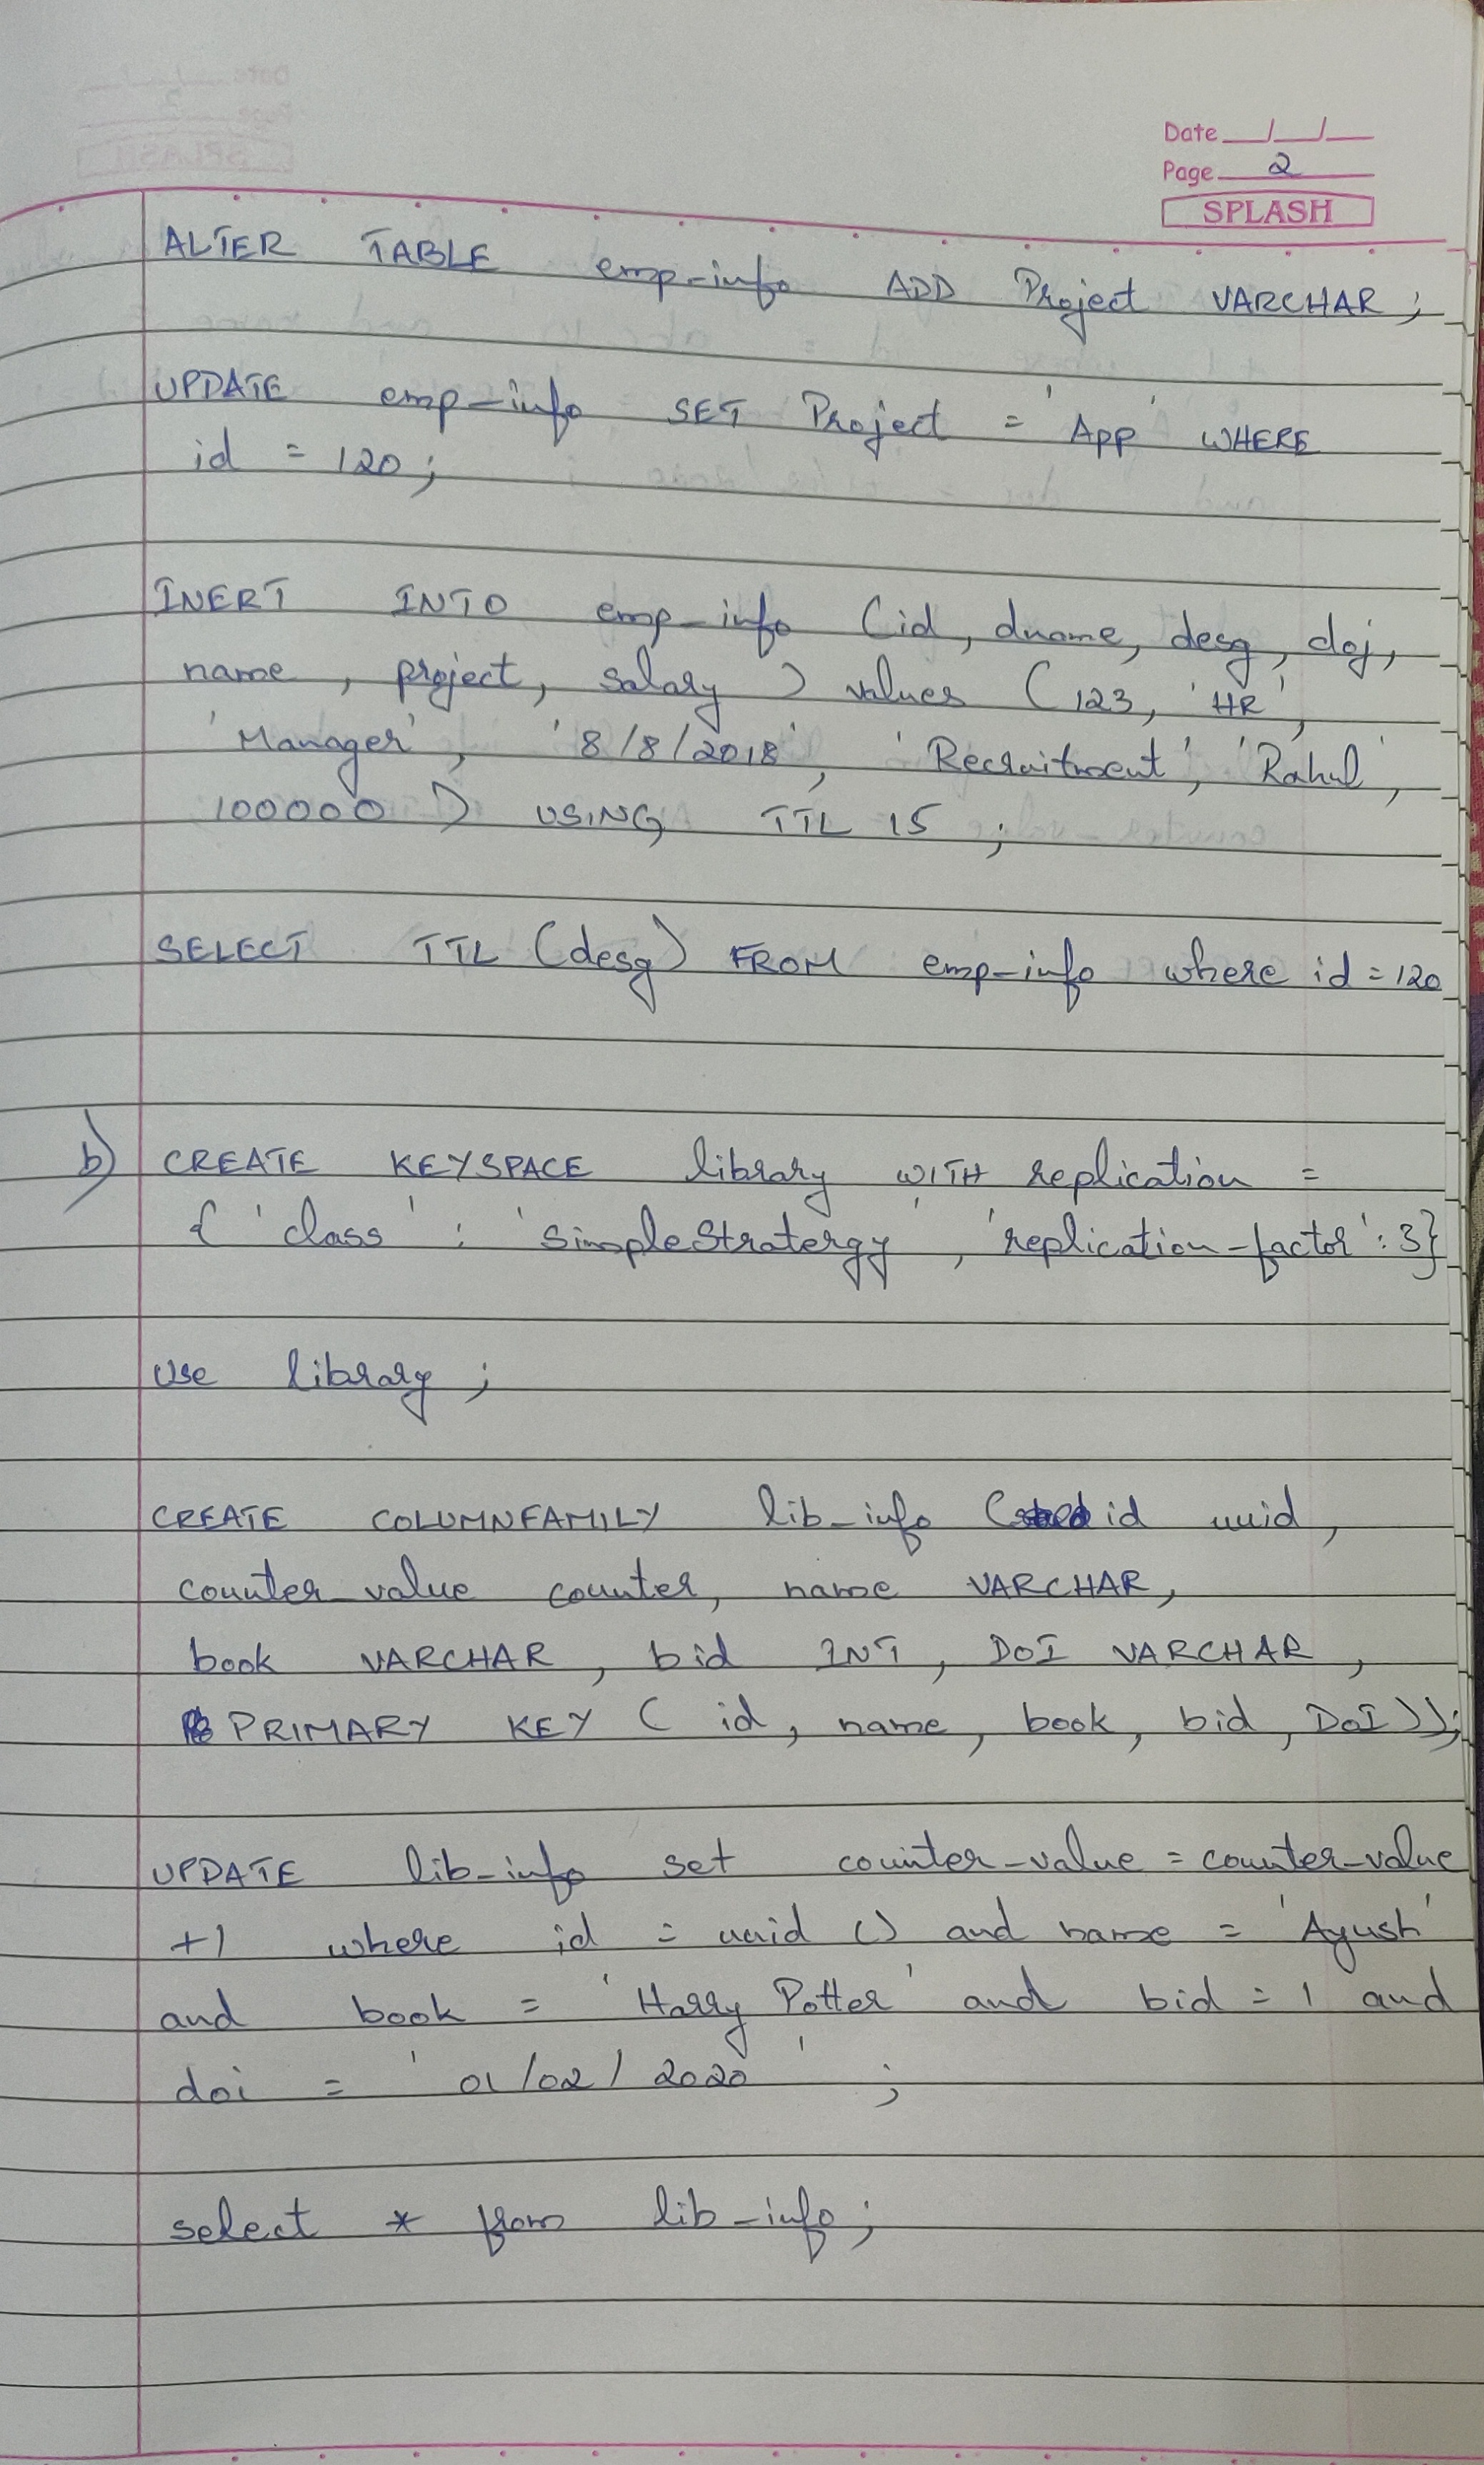 Date / /
Page 2
SPLASH
ALTER TABLE emp-info ADD Project VARCHAR;
UPDATE emp-info SET Project = 'App' WHERE
id = 120;
INERT INTO emp-info (id, dname, desg, doj,
name, project, salary) values (123, 'HR',
'Manager', '8/8/2018', 'Recruitment', 'Rahul',
100000) USING TTL 15;
SELECT TTL (desg) FROM emp-info where id = 120
b) CREATE KEYSPACE library WITH replication =
{ 'class' : 'SimpleStratergy', 'replication-factor' : 3}
use library;
CREATE COLUMNFAMILY lib-info (id uuid,
counter_value counter, name VARCHAR,
book VARCHAR, bid INT, DOI VARCHAR,
PRIMARY KEY (id, name, book, bid, DOI));
UPDATE lib-info set counter-value = counter-value
+1 where id = uuid () and name = 'Ayush'
and book = 'Harry Potter' and bid = 1 and
doi = '01/02/2020';
select * from lib-info;